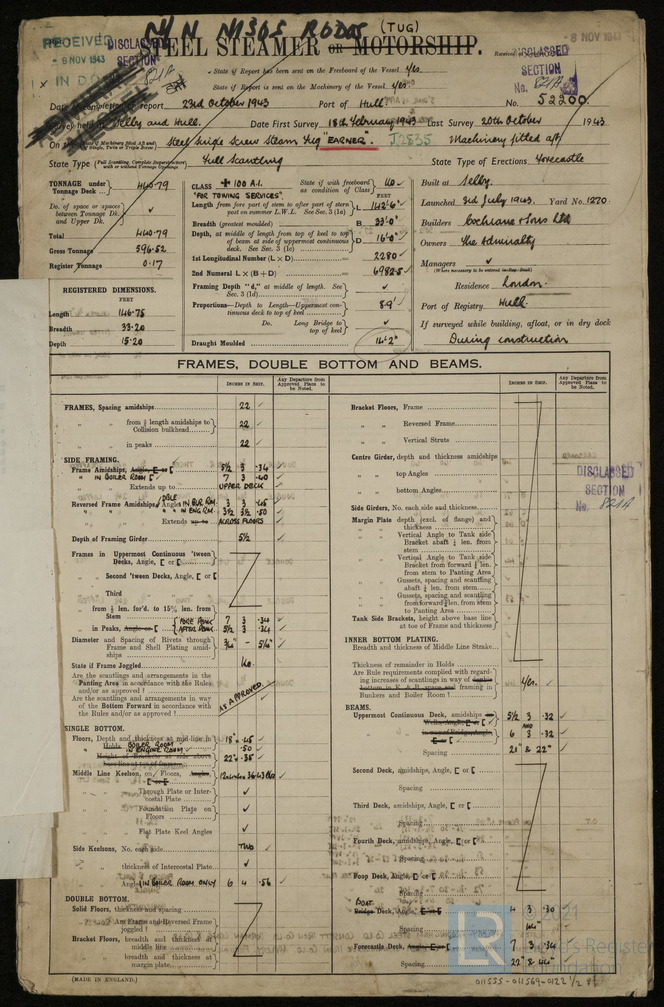 M/N NISOS RODOS (TUG)
RECEIVED
- 8 NOV 1943
IN D.O.
DISCLASSED
SECTION
821A
STEEL STEAMER OR MOTORSHIP.
- 8 NOV 1943
DISCLASSED
SECTION
No. 821A
State if Report has been sent on the Freeboard of the Vessel Yes.
State if Report is sent on the Machinery of the Vessel Yes.
Date of completion of report 23rd October 1943 Port of Hull No. 52200.
Survey held at Selby and Hull. Date First Survey 18th February 1943 Last Survey 20th October 1943
On the Steel Single Screw Steam Tug "EARNER". J2835 Machinery fitted aft
State Type (Full Scantling, Complete Superstructure with or without Tonnage Openings) Full Scantling State Type of Erections Forecastle
TONNAGE under Tonnage Deck 440.79
Do. of space or spaces between Tonnage Dk. and Upper Dk. ✓
Total 440.79
Gross Tonnage 596.52
Register Tonnage 0.17
REGISTERED DIMENSIONS.
FEET
Length 146.75
Breadth 33.20
Depth 15.20
CLASS + 100 A.1. State if with freeboard as condition of Class No
"FOR TOWING SERVICES" FEET
Length from fore part of stem to after part of stern post on summer L.W.L. See Sec. 3 (1a) L 142'-6"
Breadth (greatest moulded) B 33'-0"
Depth, at middle of length from top of keel to top of beam at side of uppermost continuous deck. See Sec. 3 (1c) D 16'-0"
1st Longitudinal Number (L × D) 2280
2nd Numeral L × (B + D) 6982.5
Framing Depth "d," at middle of length. See Sec. 3 (1d) ✓
Proportions—Depth to Length—Uppermost continuous deck to top of keel 8.9
Do. Long Bridge to top of keel ✓
Draught Moulded 14'-2"
Built at Selby.
Launched 3rd July 1943. Yard No. 1270
Builders Cochrane & Sons Ltd
Owners The Admiralty
Managers ✓
(Where necessary to be entered in Reg. Book)
Residence London.
Port of Registry Hull.
If surveyed while building, afloat, or in dry dock
During construction
FRAMES, DOUBLE BOTTOM AND BEAMS.
INCHES IN SHIP. Any Departure from Approved Plans to be Noted.
FRAMES, Spacing amidships 22 ✓
" " from ⅗ length amidships to Collision bulkhead 22 ✓
" " in peaks 22 ✓
SIDE FRAMING.
Frame Amidships, Angle, [ or [ 5½ 3 .34 ✓
" IN BOILER ROOM [ ✓ 7 3 .40 ✓
" " Extends up to UPPER DECK
Reversed Frame Amidships, DBLE Angle IN BLR RM. 3 3 .45 ✓
" " " IN ENG RM. 3½ 3½ .50 ✓
" " Extends up to ACROSS FLOORS
Depth of Framing Girder 5½
Frames in Uppermost Continuous 'tween Decks, Angle, [ or [
" Second 'tween Decks, Angle, [ or [
" Third
" from ⅗ len. for'd. to 15% len. from Stem
" in Peaks, Angle or [ FORE PEAK 7 3 .34 ✓
AFTER PEAK 5½ 3 .34 ✓
Diameter and Spacing of Rivets through Frame and Shell Plating amidships ¾" - 5¼" ✓
State if Frame Joggled No.
Are the scantlings and arrangements in the Panting Area in accordance with the Rules and/or as approved? AS APPROVED.
Are the scantlings and arrangements in way of the Bottom Forward in accordance with the Rules and/or as approved?
SINGLE BOTTOM.
Floors, Depth and thickness at mid-line in Holds BOILER ROOM 18" × .45 ✓
IN ENGINE ROOM ✓ .50 ✓
Height of Brackets at side above base line at toe of frame 22" × .38 ✓
Middle Line Keelson, on Floors, Angles, [ or [
" " Through Plate or Intercostal Plate ✓
" " Foundation Plate on Floors ✓
" " Flat Plate Keel Angles ✓
Side Keelsons, No. each side TWO ✓
" " thickness of Intercostal Plate ✓
" " Angles IN BOILER ROOM ONLY 6 4 .56 ✓
DOUBLE BOTTOM.
Solid Floors, thickness and spacing
" " Are Frame and Reversed Frame joggled?
Bracket Floors, breadth and thickness at middle line
" " breadth and thickness at margin plate
(MADE IN ENGLAND.)
INCHES IN SHIP. Any Departure from Approved Plans to be Noted.
Bracket Floors, Frame
" " Reversed Frame
" " Vertical Struts
Centre Girder, depth and thickness amidships
" " top Angles
" " bottom Angles
DISCLASSED
SECTION
No. 821A
Side Girders, No. each side and thickness
Margin Plate depth (excl. of flange) and thickness
" " Vertical Angle to Tank side Bracket abaft ¼ len. from stem
" " Vertical Angle to Tank side Bracket from forward ¼ len. from stem to Panting Area
" " Gussets, spacing and scantling abaft ¼ len. from stem
" " Gussets, spacing and scantling from forward ¼ len. from stem to Panting Area
Tank Side Brackets, height above base line at toe of Frame and thickness
INNER BOTTOM PLATING.
Breadth and thickness of Middle Line Strake
Thickness of remainder in Holds
Are Rule requirements complied with regarding increases of scantling in way of double bottom in E. & B. space and framing in Bunkers and Boiler Room? Yes. ✓
BEAMS.
Uppermost Continuous Deck, amidships 5½ 3 .32 ✓
AND
6 3 .32 ✓
Spacing 21" & 22" ✓
Second Deck, amidships, Angle, [ or [
Spacing
Third Deck, amidships, Angle, [ or [
Spacing
Fourth Deck, amidships, Angle, [ or [
Spacing
Poop Deck, Angle, [ or [
Spacing
BOAT Bridge Deck, Angle, [ or [ 4 3 .30
Spacing 44"
Forecastle Deck, Angle, [ or [ 7 3 .34
Spacing 22" & 44"
LR
© 2021
Lloyd's Register
Foundation
011535-011569-0122 1/2